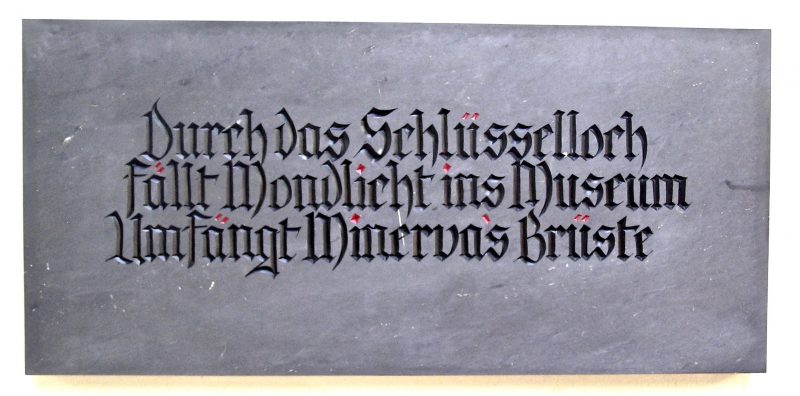 Durch das Schlüsselloch
fällt Mondlicht ins Museum
Umfängt Minerva's Brüste